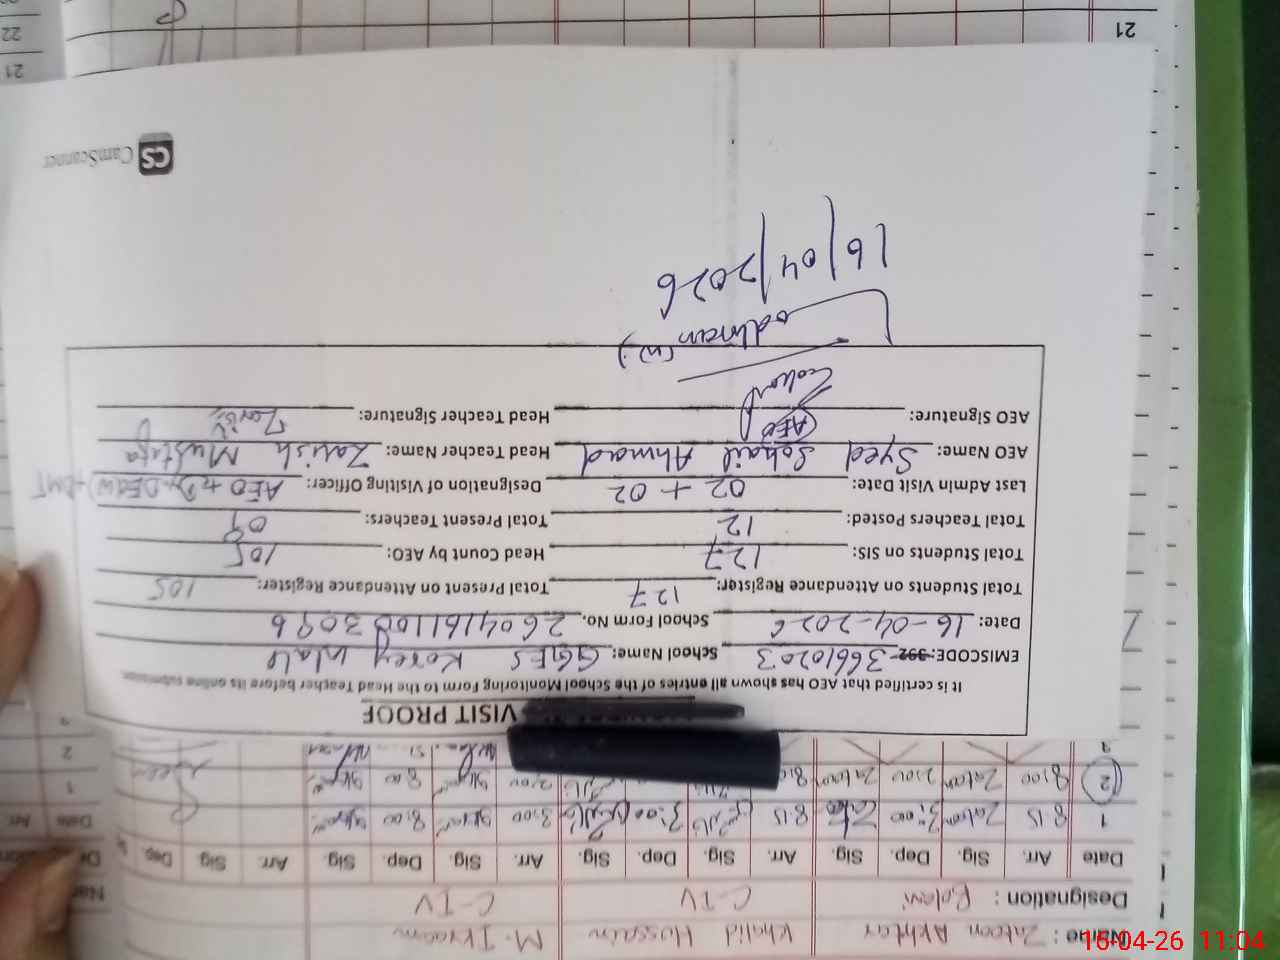 VISIT PROOF
It is certified that AEO has shown all entries of the School Monitoring Form to the Head Teacher before its online submission
EMISCODE: 392- 36610203 School Name: GGES Korey Wala
Date: 16-04-2026 School Form No. 26041611003096
Total Students on Attendance Register: 127 Total Present on Attendance Register: 105
Total Students on SIS: 127 Head Count by AEO: 105
Total Teachers Posted: 12 Total Present Teachers: 09
Last Admin Visit Date: 02 + 02 Designation of Visiting Officer: AEO + Dy. DEO(W) + DMT
AEO Name: Syed Sohail Ahmad Head Teacher Name: Zarish Mustafa
AEO Signature: (AEO) Head Teacher Signature: Zarish
16/04/2026
CS CamScanner
Name: Zatoon Akhtar Khalid Hussain M. Ikraam
Designation: C-IV C-IV
Date Arr. Sig. Dep. Sig. Arr. Sig. Dep. Sig. Arr. Sig. Dep. Sig. Arr. Sig. Dep.
1 8:15 3:00 8:15 3:00 8:00 3:00
2 8:00 2:00 8:00
21
22
21
16-04-26 11:04